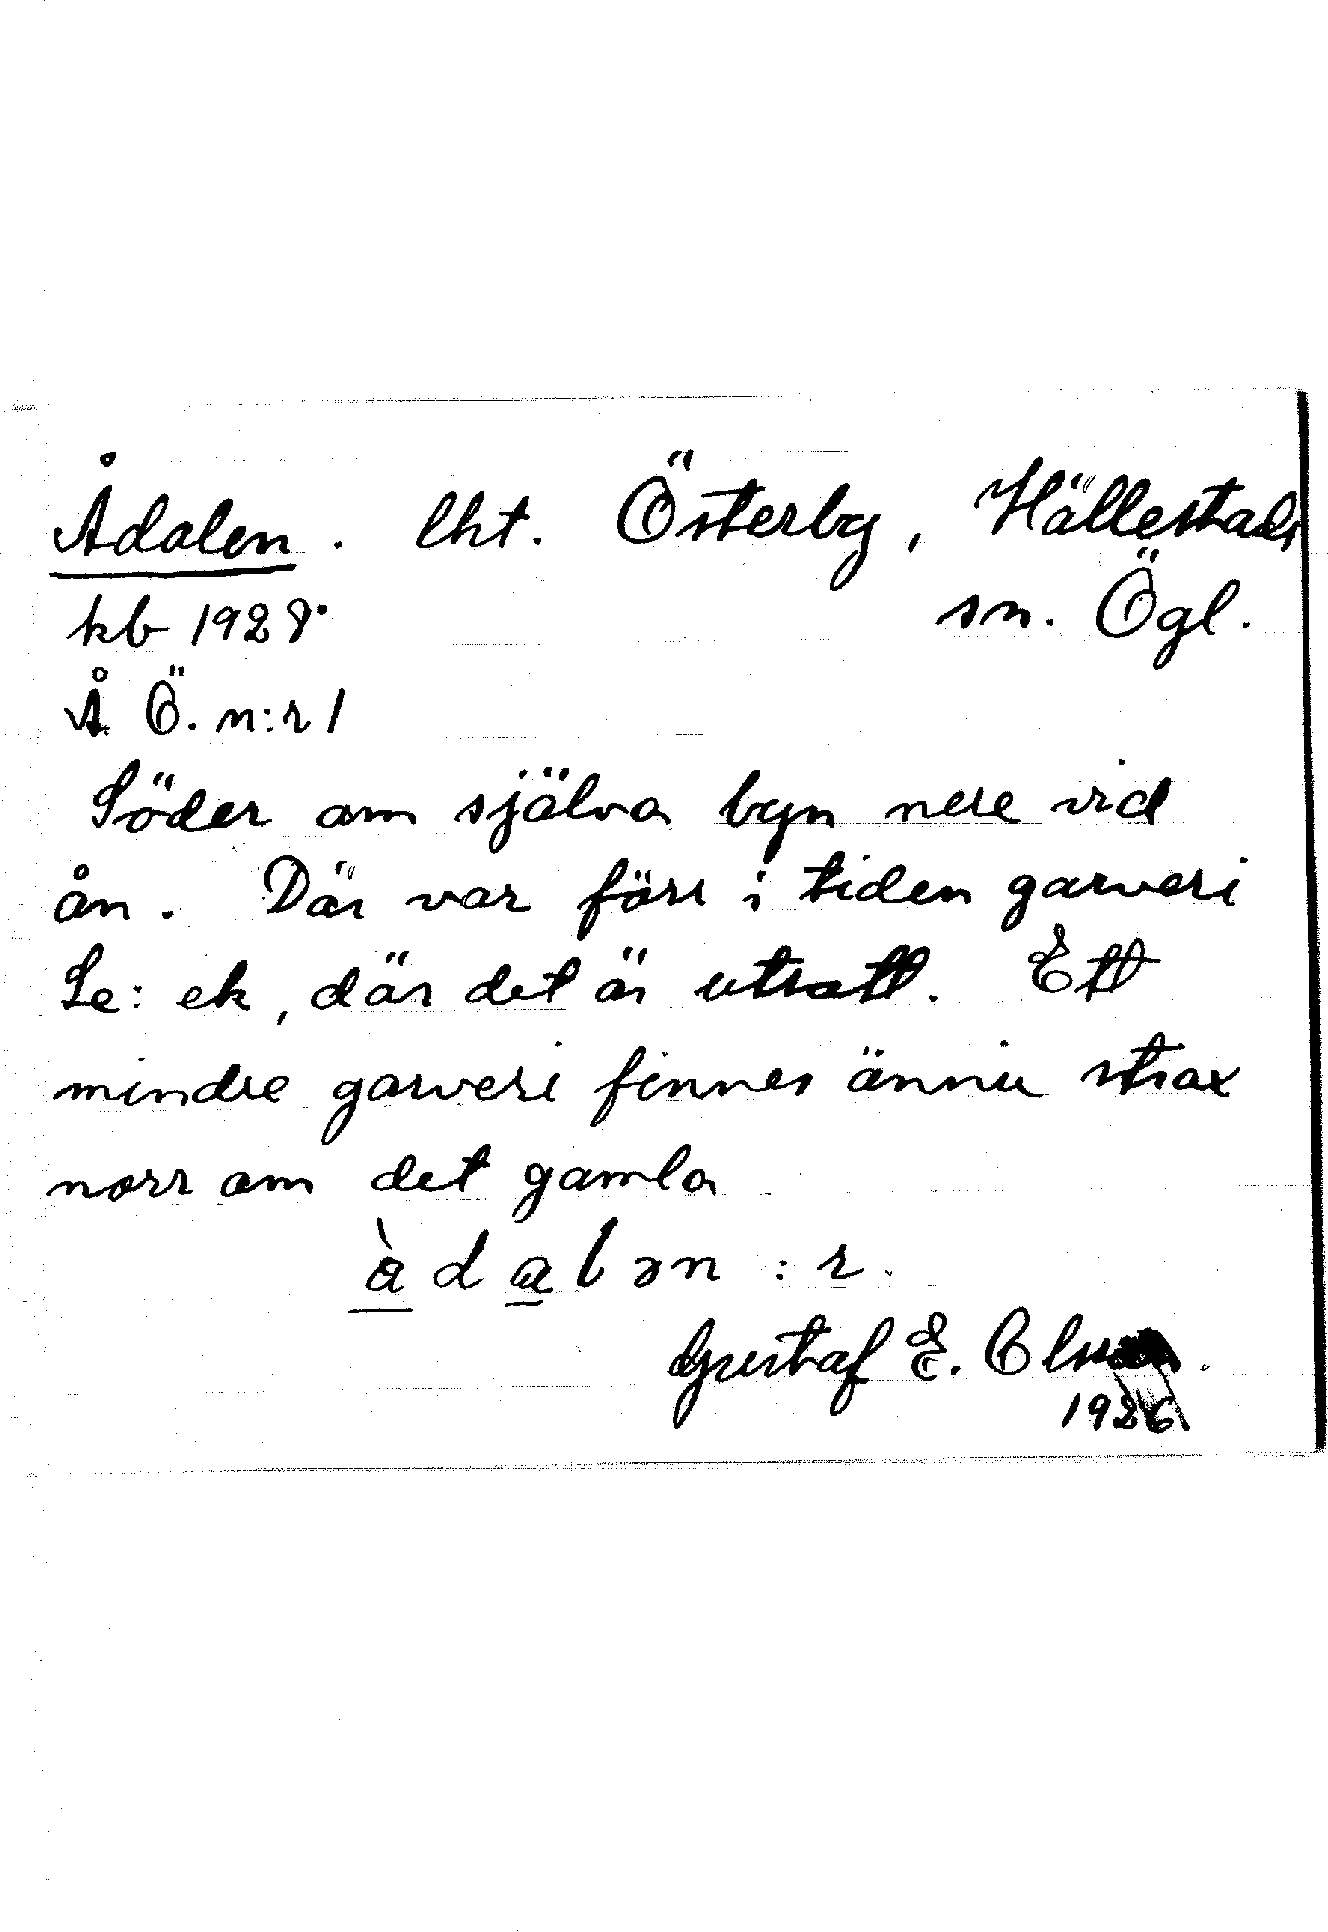 Ådalen. lht. Österby, Hällestads
kb 1928. sn. Ögl.
Å Ö. n:r 1
Söder om själva byn nere vid
ån. Där var förr i tiden garveri
Se: ek, där det är utsatt. Ett
mindre garveri finnes ännu strax
norr om det gamla
àdalən :r.
Gustaf E. Olson.
1926